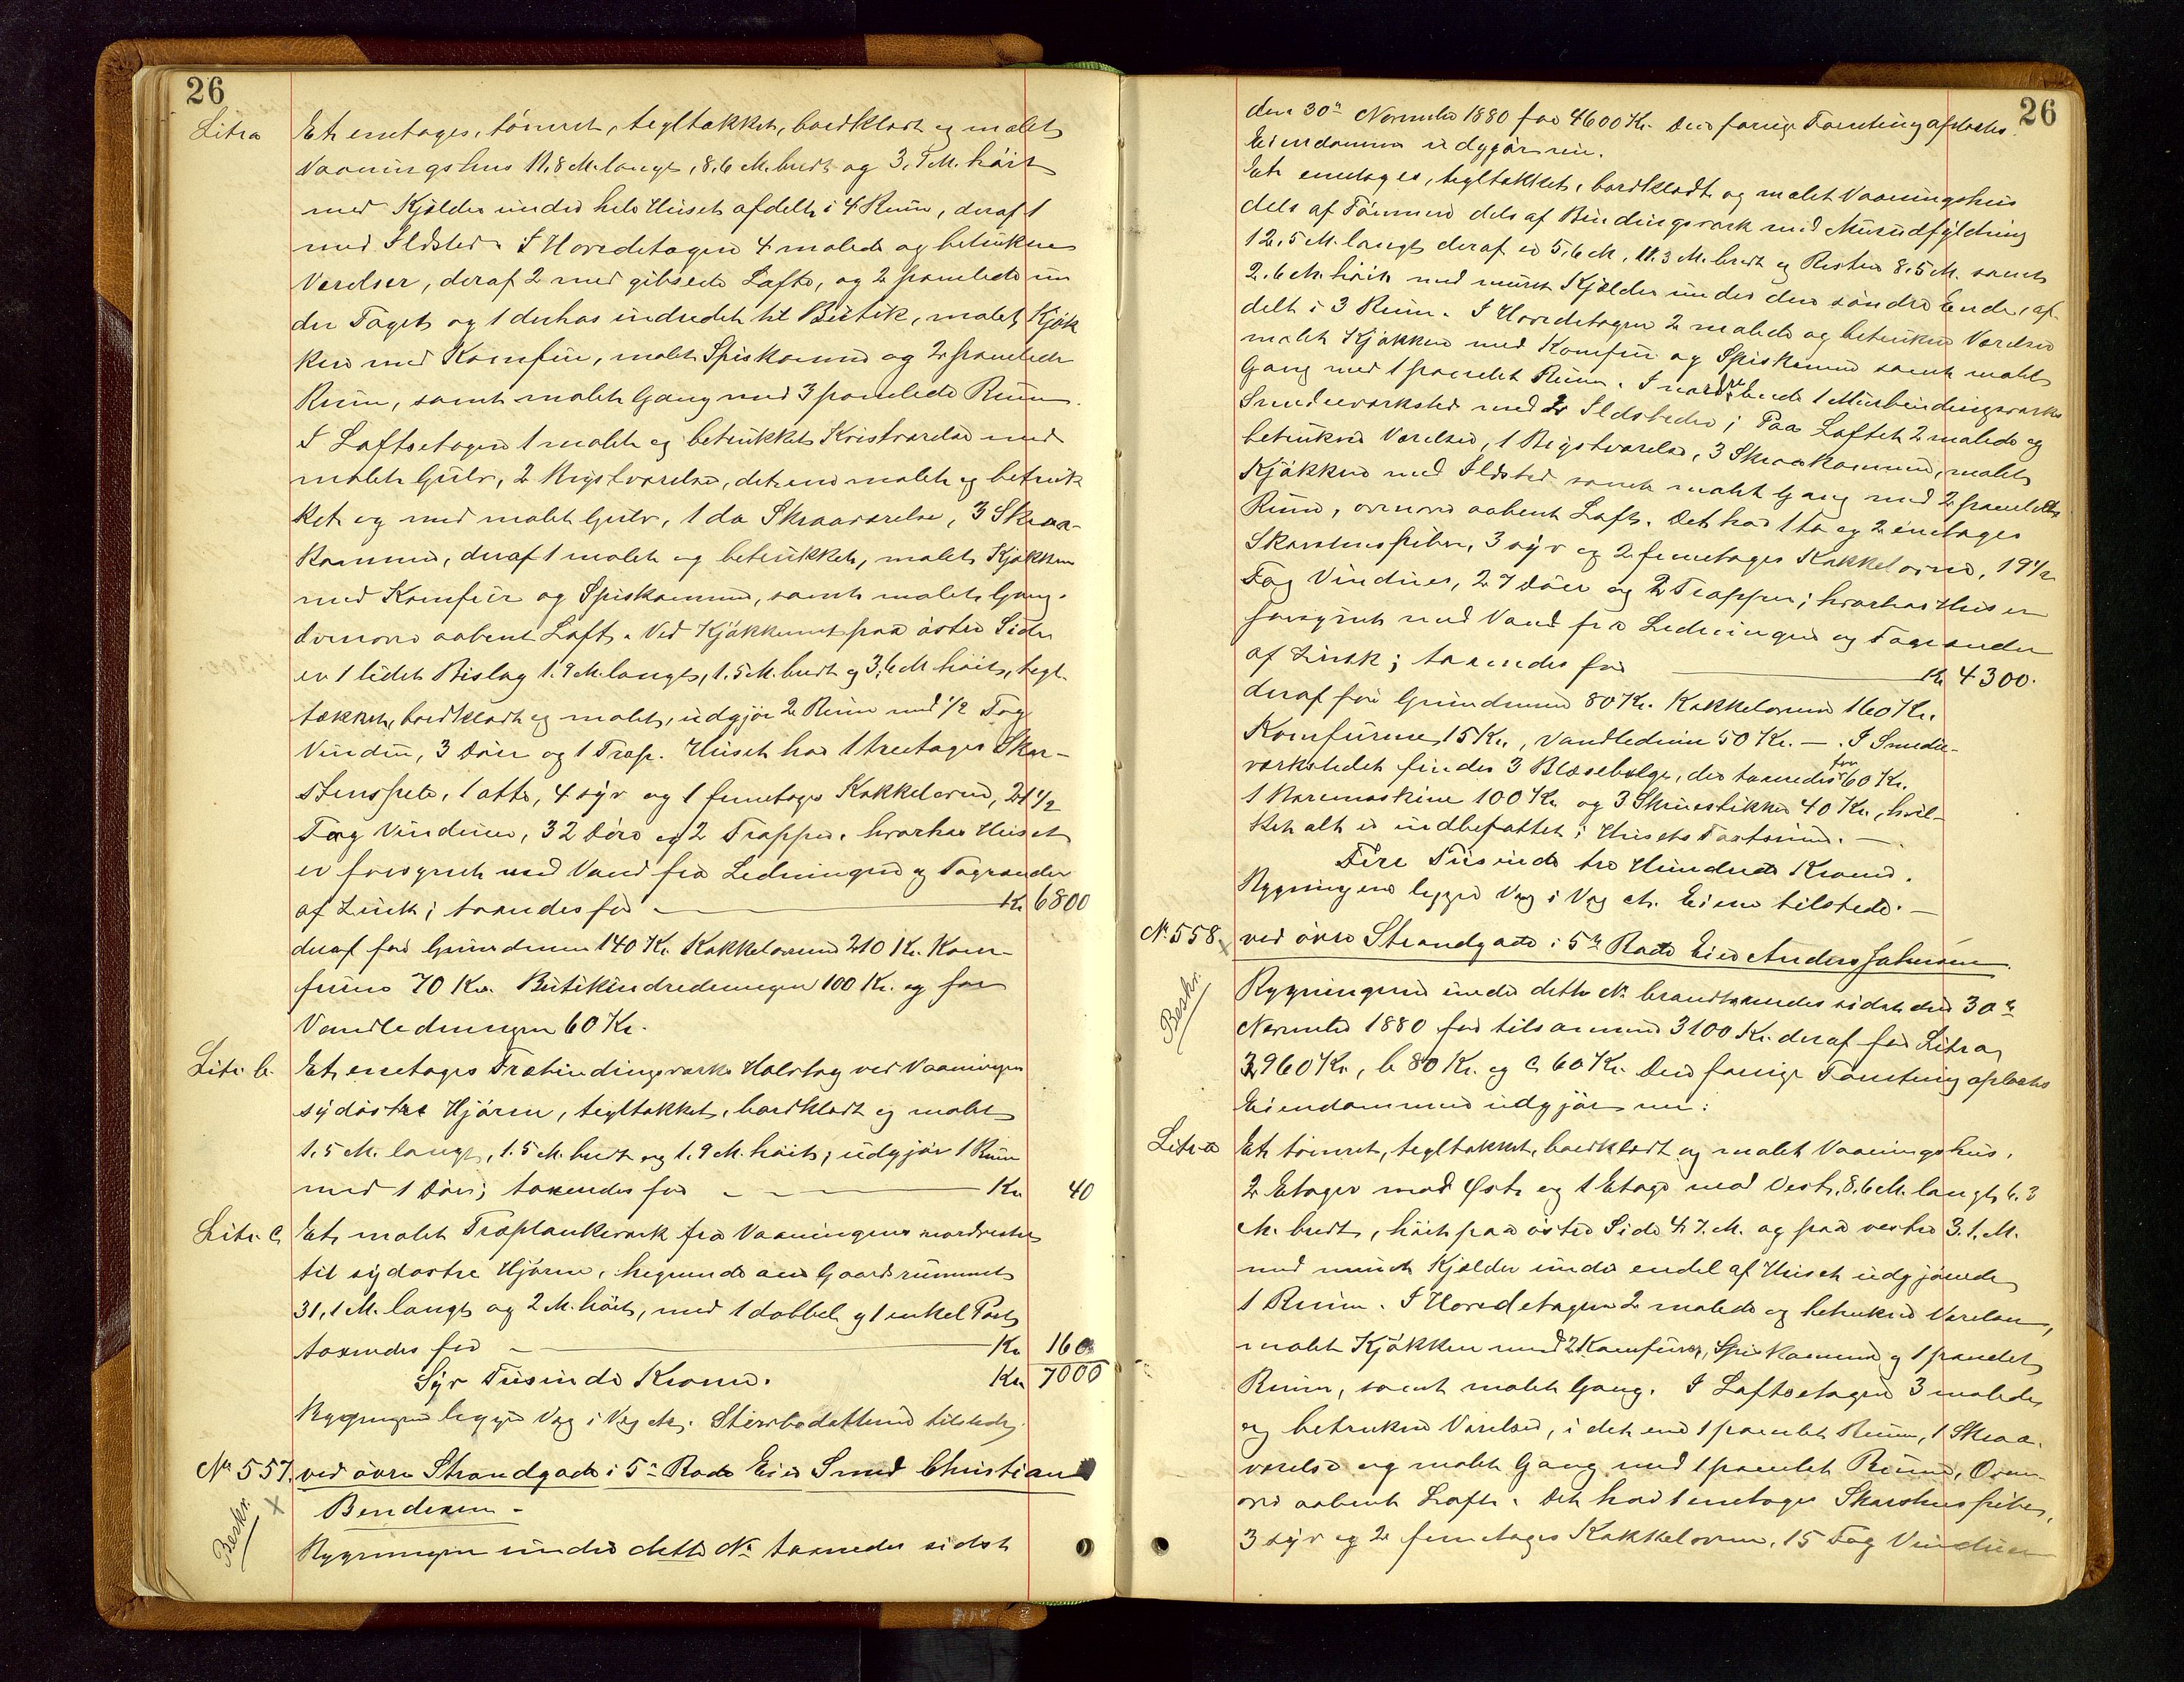 26
Litra Et enetages, tömret, tegltækket, bordklædt og malet
Vaaningshus 11.8 M. langt, 8.6 M. bredt og 3.7 M. höit
med Kjelder under hele Huset afdelt i 4 Rum, deraf 1
med Ildsted. I Hovedetagen 4 malede og betrukne
Værelser, deraf 2 med gibsede Lofte, og 2 panelede un
der Taget og 1 derhos indredet til Butik, malet Kjøk
ken med Komfür, malet Spiskammer og 2 panelede
Rum, samt malet Gang med 3 panelede Rum.
I Loftsetagen 1 malet og betrukket Kvistværelse med
malet Gulv, 2 Røgstværelser, det ene malet og betruk
ket og med malet Gulv, 1 do Skraaværelse, 3 Skraa-
kammer, deraf 1 malet og betrukket, malet Kjøkken
med Komfür og Spiskammer, samt malet Gang.
Ovenover aabent Loft. Ved Kjøkkenet paa östre Side
er 1 lidet Bislag 1.9 M. langt, 1.5 M. bredt og 3.6 M höit, tegl
tækket, bordklædt og malet, udgjör 2 Rum med 1/2 Fag
Vindu, 3 Döre og 1 Trap. Huset har 1 treetages Skor-
stenspibe, 1 otte, 4 syv og 1 femetages Kakkelovne, 21 1/2
Fag Vinduer, 32 Döre og 2 Trapper. hvorhos Huset
er forsynet med Vand fra Ledningen og Tagrender
af Zink; taxeredes for Kr 6800
deraf for Grundmur 140 Kr. Kakkelovne 210 Kr. Kom-
fürene 70 Kr. Butikindredningen 100 Kr. og for
Vandledningen 60 Kr.
Litr. b. Et enetages Træbindingsværks Halvtag ved Vaaningens
sydöstre Hjörne, tegltækket, bordklædt og malet
1.5 M. langt, 1.5 M. bredt og 1.9 M. höit; udgjör 1 Rum
med 1 Dör; taxeredes for Kr. 40
Litr. c Et malet Træplankeværk fra Vaaningens nordvestre
til sydöstre Hjörne, begrænsende Gaardsrummet
31,1 M. langt og 2 M. höit, med 1 dobbel og 1 enkel Port
taxeredes for Kr 160
Syv Tusinde Kroner. Kr. 7000
Bygningerne ligger Væg i Væg etc. Sterbodatteren tilstede.
No 557. ved övre Strandgade i 5te Rode Eier Smed Christian
Beskr. × Bendixen -
Bygningen under dette No taxeredes sidst
26
den 30te November 1880 for 4600 Kr. Den forrige Taxering aflæstes.
Eiendommen udgjör nu.
Et enetages, tegltækket, bordklædt og malet Vaaningshus
dels af Tömmer dels af Bindingsværk med Murudfyldning
12.5 M. langt deraf er 5.6 M, 11.3 M. bredt og Resten 8.5 M. samt
2.6 M. höit med muret Kjelder under den söndre Ende, af-
delt i 3 Rum. I Hovedetagen 2 malede og betrukne Værelser
malet Kjøkken med Komfür og Spiskammer samt malet
Gang med 1 panelet Rum. I nordre Ende 1 Murbindingsværks
Smedeværksted med 2 Ildsteder; Paa Loftet 2 malede og
betrukne Værelser, 1 Røgstværelse, 3 Skraakammer, malet
Kjøkken med Ildsted samt malet Gang med 2 panelede
Rum, ovenover aabent Loft. Det har 1 to og 2 enetages
Skorstenspiber, 3 syv og 2 femetages Kakkelovne, 19 1/2
Fag Vinduer, 27 Döre og 2 Trapper; hvorhos Huset er
forsynet med Vand fra Ledningen og Tagrender
af Zink; taxeredes for Kr 4300.
deraf for Grundmur 80 Kr. Kakkelovne 160 Kr.
Komfürerne 15 Kr., Vandlednin 50 Kr. —. I Smede-
værkstedet findes 3 Blæsebelge, der taxeredes for 60 Kr.
1 Boremaskine 100 Kr. og 3 Skruestikker 40 Kr., hvil-
ket alt er indbefattet i Husets Taxtsum. —
Fire Tusinde tre Hundrede Kroner.
Bygningerne ligger Væg i Væg etc. Eieren tilstede. —
No 558. × ved övre Strandgade i 5te Rode Eier Anders Johnsen.
Beskr. Bygningerne under dette No brandtaxeredes sidst den 30te
November 1880 for tilsammen 3100 Kr. deraf for Litr a,
2960 Kr., b 80 Kr. og c 60 Kr. Den forrige Taxering oplæstes
Eiendommen udgjör nu:
Litr a Et tömret, tegltækket, bordklædt og malet Vaaningshus,
2 Etager mod Øst og 1 Etage mod Vest. 8.6 M. langt, 6.3
M. bredt, höit paa östre Side 4.7. M. og paa vestre 3.1. M.
med muret Kjelder under endel af Huset udgjörende
1 Rum. I Hovedetagen 2 malede og betrukne Værelser,
malet Kjøkken med 2 Komfürer, Spiskammer og 1 panelet
Rum, samt malet Gang. I Loftsetagen 3 malede
og betrukne Værelser, i det ene 1 panelet Rum, 1 Skraa-
værelse og malet Gang med 1 panelet Rum, Oven-
over aabent Loft. Det har 1 enetages Skorstenspibe,
3 syv og 2 femetages Kakkelovne, 15 Fag Vinduer